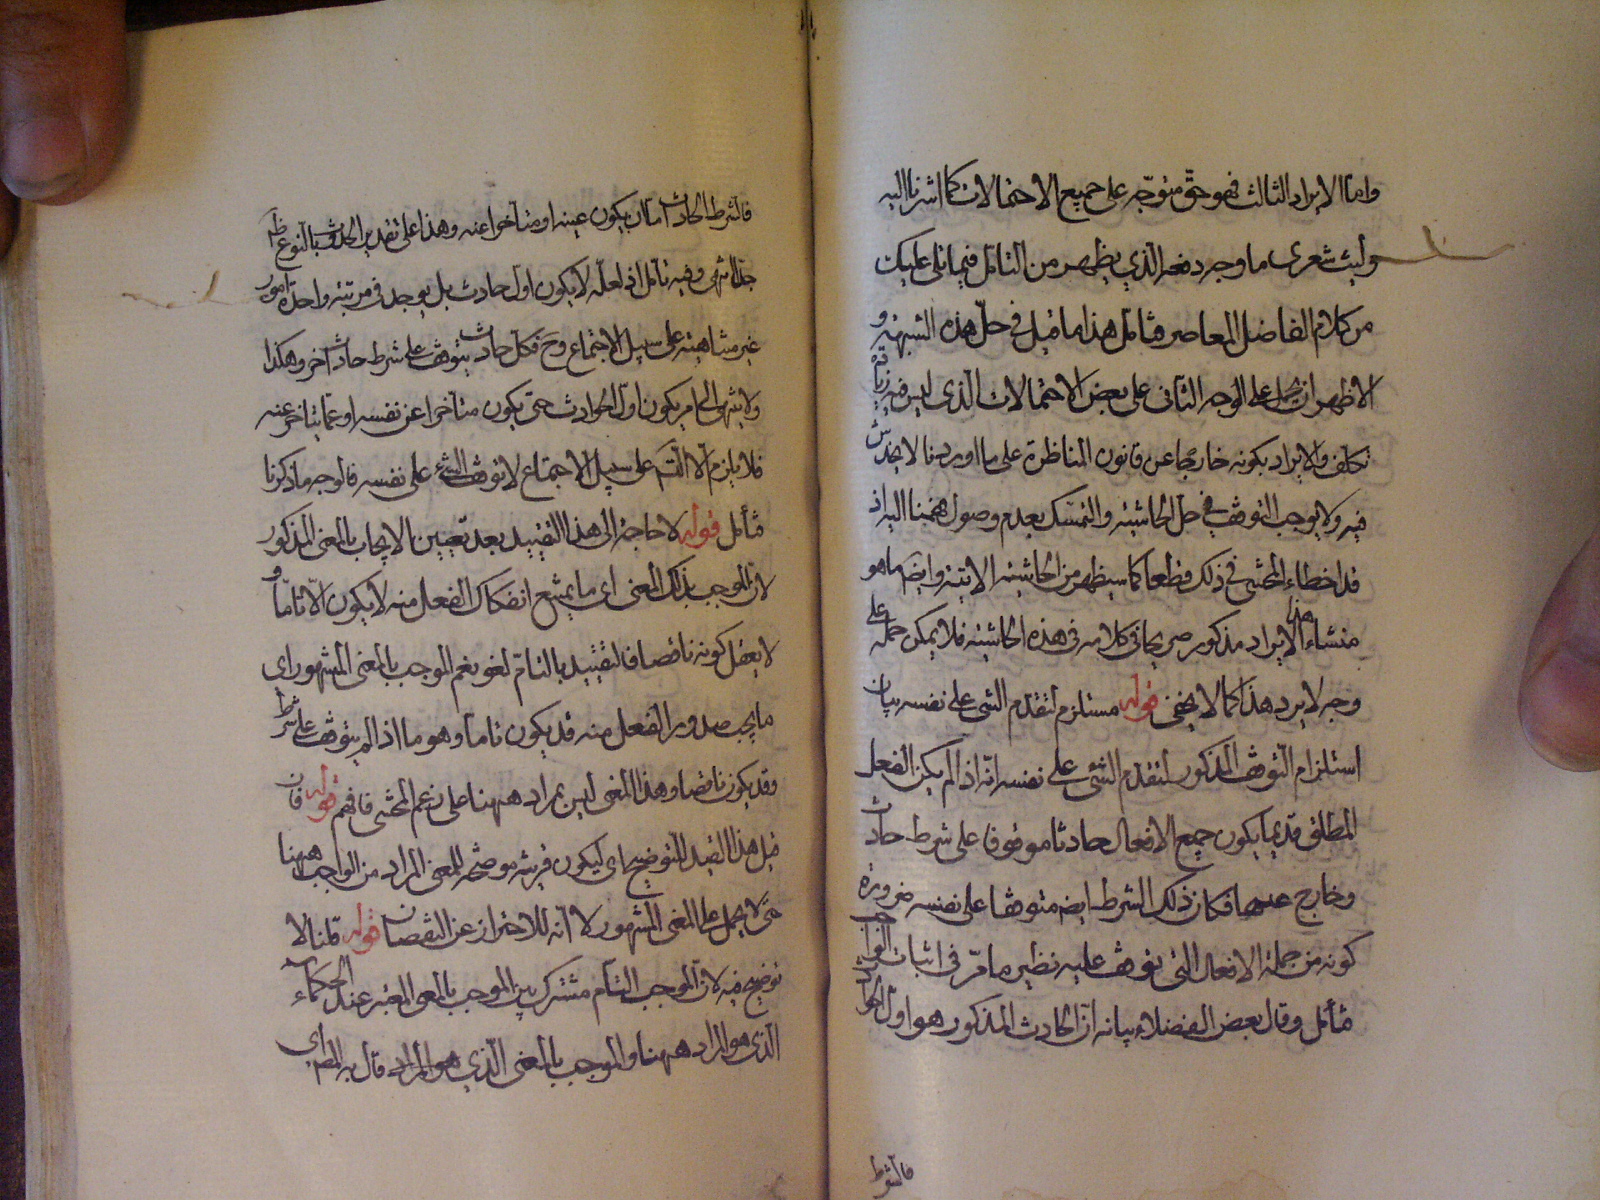 واما الايراد الثالث فهو حق متوجه على جميع الاحتمالات كما اشرنا اليه
وليت شعرى ما وجه دفعه الذي يظهر من التامل فيما تلى عليك
من كلام الفاضل المعاصر فتامل هذا ما قيل في حل هذه الشبهة و
الاظهر ان يحمل على الوجه الثاني على بعض الاحتمالات الذي ليس فيه زيادة
تكلف والايراد بكونه خارجا عن قانون المناظرة على ما اوردنا لا يخدش
فيه ولا يوجب التوقف في حل الحاشية والتمسك بعدم وصول فهمنا اليه اذ
قد اخطاء المحشي في ذلك قطعا كما سيظهر من الحاشية الاتية وايضا ما هو
منشاء هذا الايراد مذكور صريحا في كلامه في هذه الحاشية فلا يمكن حمله على
وجه لا يرد هذا كما لا يخفى قوله مستلزم لتقدم الشئ على نفسه بيان
استلزام التوقف المذكور لتقدم الشئ على نفسه انه اذا لم يكن الفعل
المطلق قديما يكون جميع الافعال حادثا موقوفا على شرط حادث
وخارج عنها فكان ذلك الشرط ايضا متوقفا على نفسه ضرورة
كونه من جملة الافعال التي يتوقف عليه نظير ما مر في اثبات الواجب
فتأمل وقال بعض الفضلاء بيانه ان الحادث المذكور هو اول الحوادث
فالشرط
فالشرط الحادث اما ان يكون عينه او متأخرا عنه وهذا على تقدير الحدوث بالنوع ظاهر
جدا انتهى وفيه تأمل اذ لعله لا يكون اول حادث بل يوجد في مرتبة واحدة امور
غير متناهية على سبيل الاجتماع وح فكل حادث يتوقف على شرط حادث آخر وهكذا
ولا ينتهى الى امر يكون اول الحوادث حتى يكون متأخرا عن نفسه او عما يتأخر عنه
فلا يلزم الا التسم على سبيل الاجتماع لا توقف الشئ على نفسه فالوجه ما ذكرنا
فتأمل قوله لا حاجة الى هذا التقييد بعد تعيين الايجاب بالمعنى المذكور
لان الموجب بذلك المعنى اى ما يمتنع انفكاك الفعل منه لا يكون الا تاما و
لا يعقل كونه ناقصا فالتقييد بالتام لغو نعم الموجب بالمعنى المشهور اى
ما يجب صدور الفعل منه قد يكون تاما وهو ما اذا لم يتوقف على شرط
وقد يكون ناقصا وهذا المعنى ليس بمراد ههنا على زعم المحشي فافهم قوله فان
قيل هذا القيد للتوضيح اى ليكون قرينة موضحة للمعنى المراد من الواجب ههنا
حتى لا يحمل على المعنى المشهور لا انه للاحتراز عن النقصان قوله قلنا لا
توضيح فيه لان الموجب التام مشترك بين الموجب بالمعنى المعتبر عند الحكماء
الذي هو المراد ههنا والموجب بالمعنى الذي هو المراد قال به المص اى